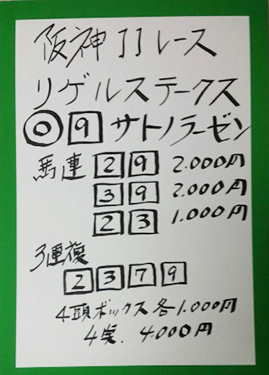 阪神11レース
リゲルステークス
◎ 9 サトノラーゼン
馬連 2 9 2.000円
3 9 2.000円
2 3 1.000円
3連複
2 3 7 9
4頭ボックス各1.000円
4点. 4.000円